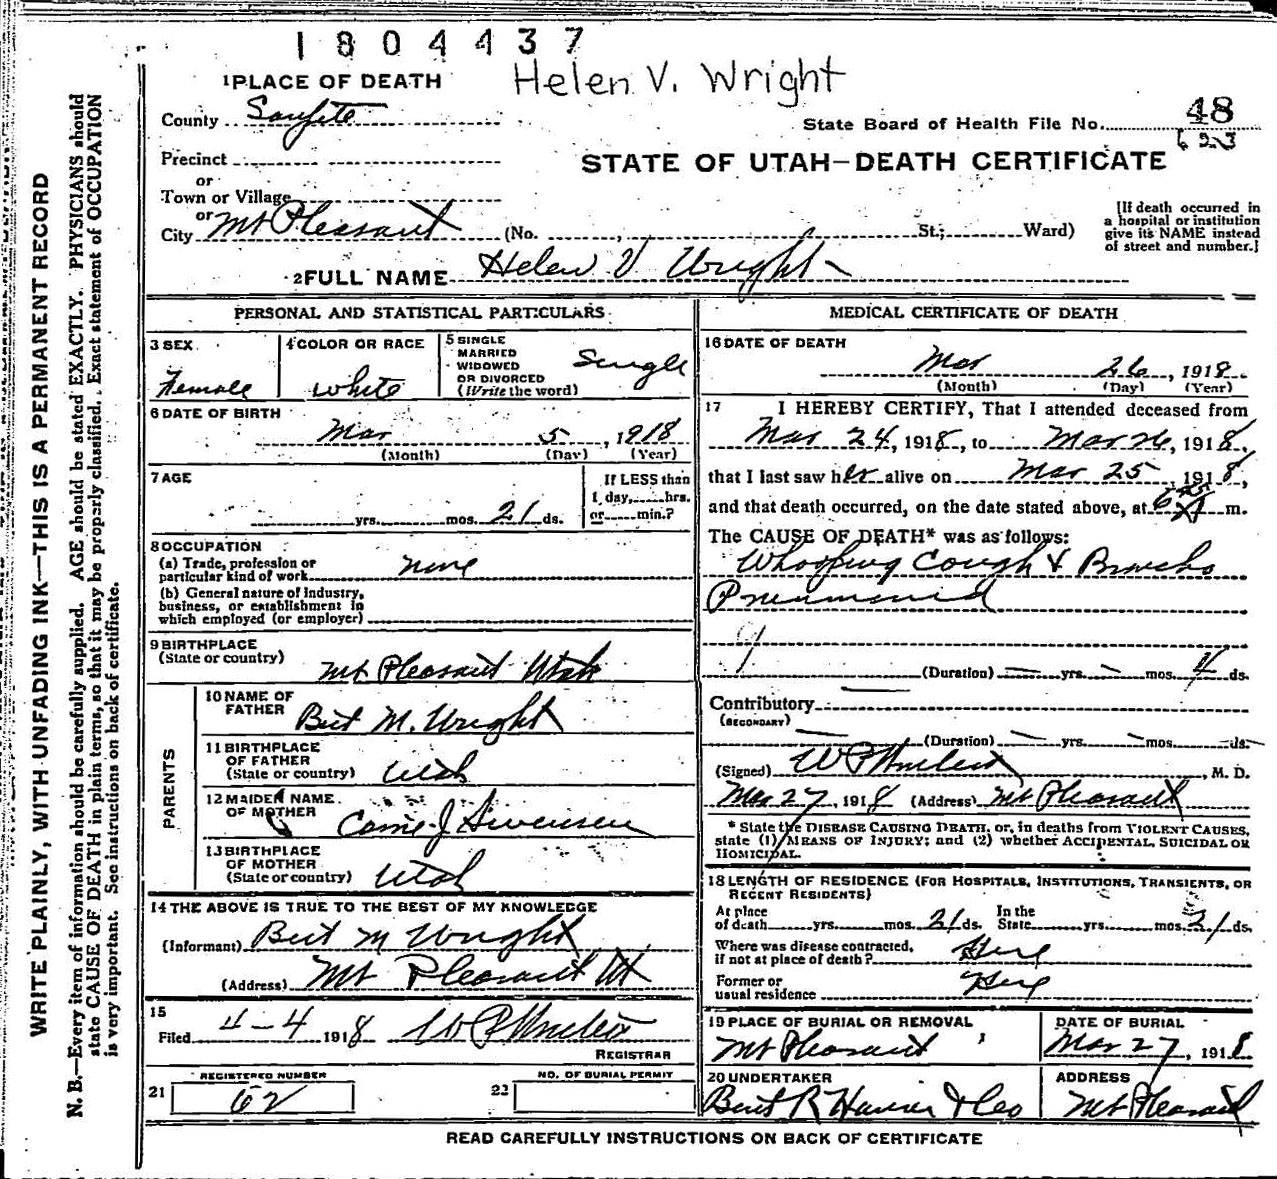 1804437
Helen V. Wright
1 PLACE OF DEATH
County Sanpete
State Board of Health File No. 48
623
Precinct
or
Town or Village
or
City Mt Pleasant (No. , St.; Ward)
STATE OF UTAH—DEATH CERTIFICATE
[If death occurred in
a hospital or institution
give its NAME instead
of street and number.]
2 FULL NAME Helen V Wright
WRITE PLAINLY, WITH UNFADING INK—THIS IS A PERMANENT RECORD
N. B.—Every item of information should be carefully supplied. AGE should be stated EXACTLY. PHYSICIANS should
state CAUSE OF DEATH in plain terms, so that it may be properly classified. Exact statement of OCCUPATION
is very important. See instructions on back of certificate.
PERSONAL AND STATISTICAL PARTICULARS
3 SEX
Female
4 COLOR OR RACE
White
5 SINGLE
MARRIED
WIDOWED
OR DIVORCED
(Write the word)
Single
6 DATE OF BIRTH
Mar 5, 1918
(Month) (Day) (Year)
7 AGE
yrs. mos. 21 ds.
If LESS than
1 day, hrs.
or min.?
8 OCCUPATION
(a) Trade, profession or
particular kind of work none
(b) General nature of industry,
business, or establishment in
which employed (or employer)
9 BIRTHPLACE
(State or country) Mt Pleasant Utah
PARENTS
10 NAME OF
FATHER Bert M. Wright
11 BIRTHPLACE
OF FATHER
(State or country) Utah
12 MAIDEN NAME
OF MOTHER J Swensen
13 BIRTHPLACE
OF MOTHER
(State or country) Utah
14 THE ABOVE IS TRUE TO THE BEST OF MY KNOWLEDGE
(Informant) Bert M Wright
(Address) Mt Pleasant Ut
15
Filed 4-4 1918
REGISTRAR
21 REGISTERED NUMBER
62
22 NO. OF BURIAL PERMIT
MEDICAL CERTIFICATE OF DEATH
16 DATE OF DEATH
Mar 26, 1918
(Month) (Day) (Year)
17 I HEREBY CERTIFY, That I attended deceased from
Mar 24, 1918, to Mar 26, 1918,
that I last saw her alive on Mar 25 1918,
and that death occurred, on the date stated above, at m.
The CAUSE OF DEATH* was as follows:
Whooping Cough & Broncho
Pneumonia
9
(Duration) yrs. mos. ds.
Contributory
(SECONDARY)
(Duration) yrs. mos. ds.
(Signed) , M. D.
Mar 27, 1918 (Address) Mt Pleasant
* State the DISEASE CAUSING DEATH, or, in deaths from VIOLENT CAUSES,
state (1) MEANS OF INJURY; and (2) whether ACCIDENTAL, SUICIDAL OR
HOMICIDAL.
18 LENGTH OF RESIDENCE (FOR HOSPITALS, INSTITUTIONS, TRANSIENTS, OR
RECENT RESIDENTS)
At place
of death yrs. mos. 21 ds.
In the
State yrs. mos. 21 ds.
Where was disease contracted,
if not at place of death? Here
Former or
usual residence Here
19 PLACE OF BURIAL OR REMOVAL
Mt Pleasant
DATE OF BURIAL
Mar 27, 1918
20 UNDERTAKER
Bent R Hansen & Co
ADDRESS
Mt Pleasant
READ CAREFULLY INSTRUCTIONS ON BACK OF CERTIFICATE